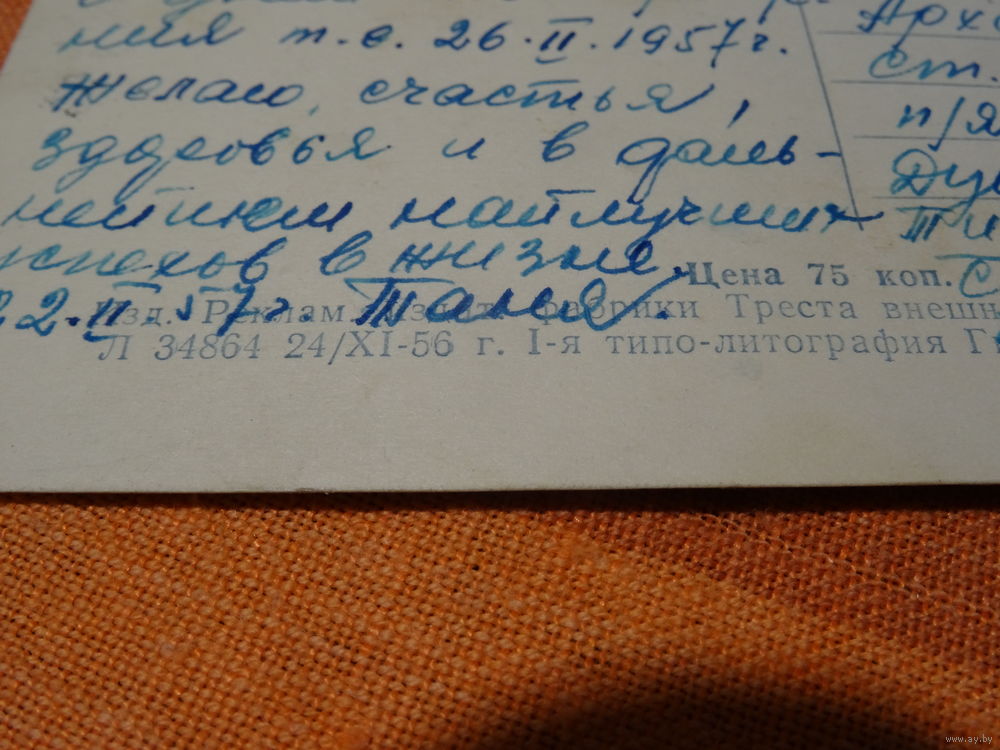 ния т.е. 26.II.1957г.
Желаю, счастья,
здоровья и в даль-
нейшем найлучших
успехов в жизне.
22.II.57г. Таня.
Арх
ст.
п/я
Цена 75 коп.
Изд. Реклам. издат. фабрики Треста внешн
Л 34864 24/XI-56 г. I-я типо-литография Г
www.ay.by